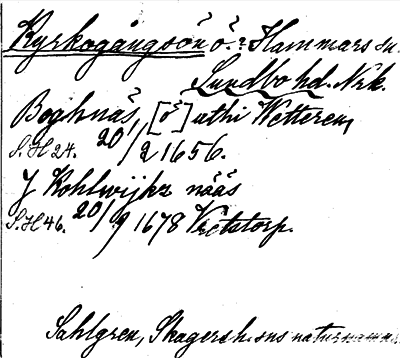 Kyrkogångsön ö. i Hammars sn.
Sundbo hd. Nrk.
Boghnäs, [ö] uthi Wetteren,
S.H 24. 20/2 1656.
J Kohlwijkz nääs
S.H 46. 20/9 1678 Vretstorp.
Sahlgren, Skagersh. sns naturnamn.